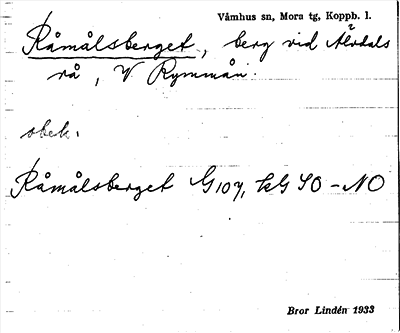 Våmhus sn, Mora tg, Koppb. l.
Råmålsberget, berg vid Älvdals
rå, V Rymmån.
obek.
Råmålsberget G107, kG SO-NO
Bror Lindén 1933